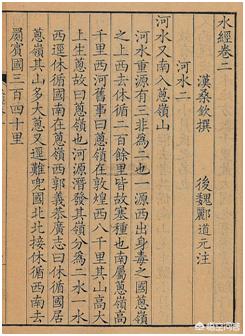 水經卷二
漢桑欽撰
後魏酈道元注
河水二
河水又南入蔥嶺山
河水重源有三非為二也一源西出身毒之國蔥嶺
之上西去休循二百餘里皆故塞種也南屬蔥嶺高
千里西河舊事曰蔥嶺在敦煌西八千里其山高大
上生蔥故曰蔥嶺也河源潛發其嶺分為二水一水
西逕休循國南在蔥嶺西郭義恭廣志曰休循國居
蔥嶺其山多大蔥又逕難兜國北北接休循西南去
罽賓國三百四十里